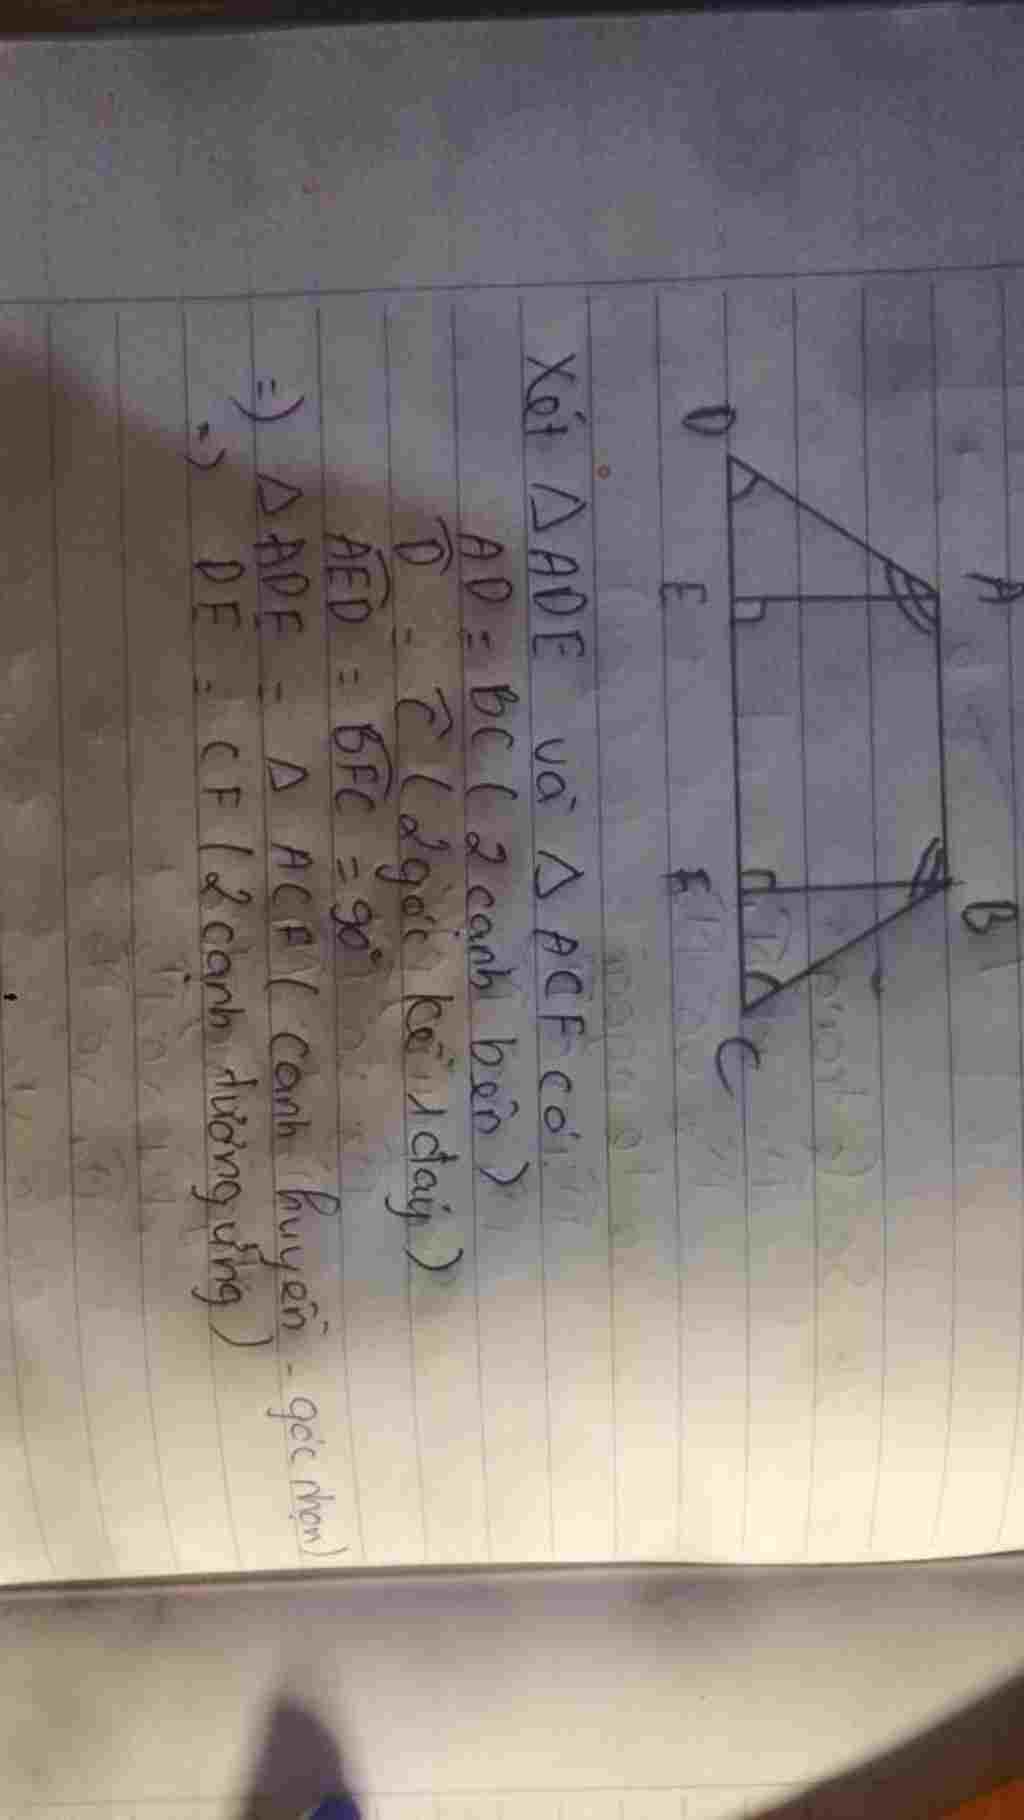 A B
D E F C
Xét Δ ADE và Δ ACF có:
AD = BC ( 2 cạnh bên )
D̂ = Ĉ ( 2 góc kề 1 đáy )
AED = BFC = 90°
=) Δ ADE = Δ ACF ( cạnh huyền - góc nhọn )
=) DE = CF ( 2 cạnh tương ứng )